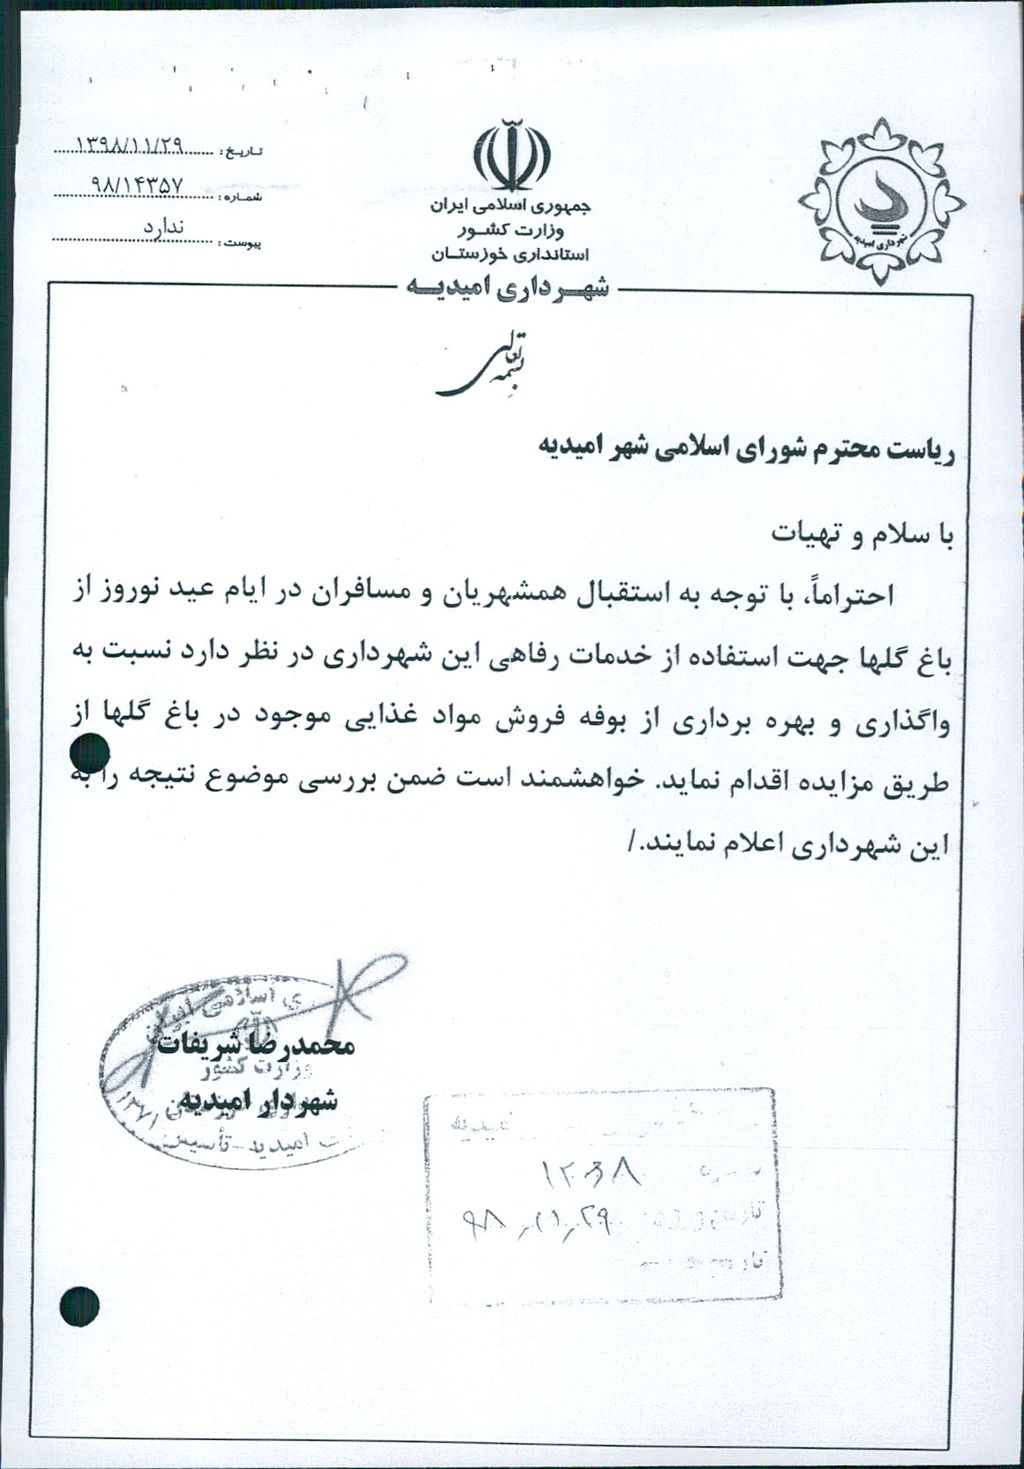 تاریخ: ۱۳۹۸/۱۱/۲۹
شماره: ۹۸/۱۴۳۵۷
پیوست: ندارد
جمهوری اسلامی ایران
وزارت کشور
استانداری خوزستان
شهرداری امیدیه
شهرداری امیدیه
بسمه تعالی
ریاست محترم شورای اسلامی شهر امیدیه
با سلام و تهیات
احتراماً، با توجه به استقبال همشهریان و مسافران در ایام عید نوروز از
باغ گلها جهت استفاده از خدمات رفاهی این شهرداری در نظر دارد نسبت به
واگذاری و بهره برداری از بوفه فروش مواد غذایی موجود در باغ گلها از
طریق مزایده اقدام نماید. خواهشمند است ضمن بررسی موضوع نتیجه را به
این شهرداری اعلام نمایند./
محمدرضا شریفات
شهردار امیدیه
اسلامی ایران
وزارت کشور
امیدیه - تأسیس ۱۳۷۱
۹۸/۱۱/۲۹